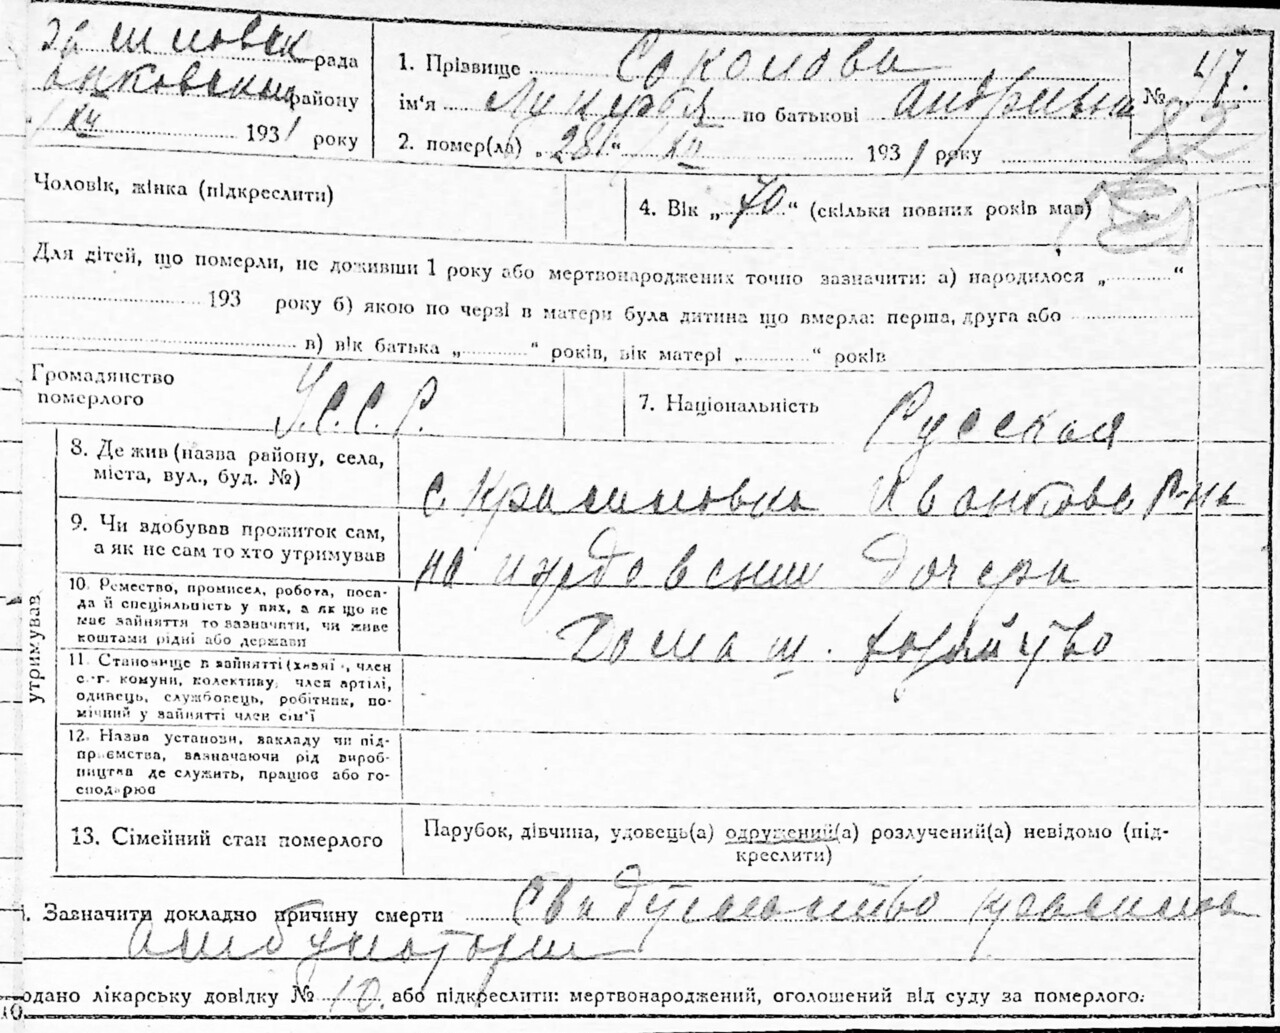 рада
1. Прізвище Соколова
№ 47.
району
ім'я по батькові
82
/XII 1931 року
2. помер(ла) „28“ /XII 1931 року
Чоловік, жінка (підкреслити)
4. Вік „70“ (скільки повних років мав)
Для дітей, що померли, не доживши 1 року або мертвонароджених точно зазначити: а) народилося „ “
193 року б) якою по черзі в матери була дитина що вмерла: перша, друга або
в) вік батька „ “ років, вік матері „ “ років
Громадянство
померлого
У.С.С.Р.
7. Національність Русская
8. Де жив (назва району, села,
міста, вул., буд. №)
с Красиловка Иванково Р-на
9. Чи здобував прожиток сам,
а як не сам то хто утримував
на иждевении дочери
10. Ремество, промисел, робота, поса-
да й спеціяльність у них, а як що не
має зайняття то зазначити, чи живе
коштами рідні або держави
Домаш. хозяйство
утримував
11. Становище в зайнятті (хазяї, член
с.-г. комуни, колективу, член артілі,
одинець, службовець, робітник, по-
мічний у зайнятті член сім'ї
12. Назва установи, закладу чи під-
приємства, зазначаючи рід вироб-
ництва де служить, працює або го-
сподарює
13. Сімейний стан померлого
Парубок, дівчина, удовець(а) одружений(а) розлучений(а) невідомо (під-
креслити)
Зазначити докладно причину смерти
амбулатории
одано лікарську довідку № 10 або підкреслити: мертвонароджений, оголошений від суду за померлого.